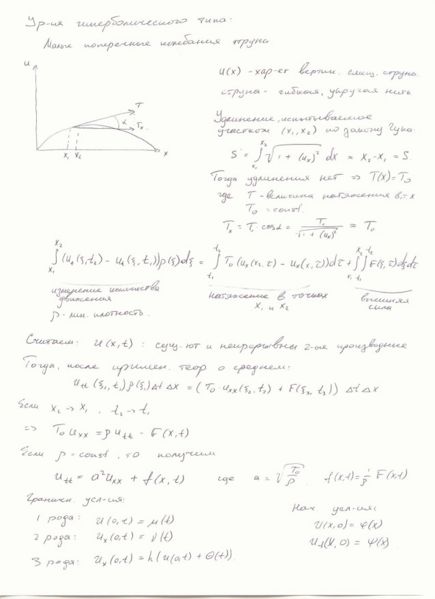 Ур-ия гиперболического типа:
Малые поперечные колебания струны
u
T
α
Tx
x₁ x₂ x
u(x) - хар-ет вертик. смещ. струны
струна - гибкая, упругая нить
Удлинение, испытываемое
участком (x₁, x₂) по закону Гука
S' = ∫ₓ₁ˣ² √(1 + (uₓ)²) dx = x₂ - x₁ = S
Тогда удлинения нет ⇒ T(x) = T₀
где T - величина натяжения в т. x
T₀ = const.
Tₓ = T cos α = T₀ / √(1 + (uₓ)²) = T₀
∫ₓ₁ˣ² (uₜ(ξ, t₂) - uₜ(ξ, t₁)) ρ(ξ) dξ = ∫ₜ₁ᵗ² T₀ (uₓ(x₂, τ) - uₓ(x₁, τ)) dτ + ∫ₓ₁ˣ² ∫ₜ₁ᵗ² F(ξ, τ) dξ dτ
изменение количества движения
натяжение в точках x₁ и x₂
внешняя сила
ρ - лин. плотность.
Считаем: u(x, t): сущ-ют и непрерывны 2-ые производные
Тогда, после примен. теор. о среднем:
uₜₜ(ξ₁, t₁) ρ(ξ₁) Δt Δx = (T₀ uₓₓ(ξ₂, t₂) + F(ξ₃, t₃)) Δt Δx
Если x₂ → x₁, t₂ → t₁
⇒ T₀ uₓₓ = ρ uₜₜ - F(x, t)
Если ρ - const, то получим
uₜₜ = a² uₓₓ + f(x, t) где a = √(T₀/ρ), f(x, t) = 1/ρ F(x, t)
Граничн. усл-ия: Нач. усл-ия:
1 рода: u(0, t) = μ(t) U(x, 0) = φ(x)
2 рода: uₓ(0, t) = ν(t) Uₜ(x, 0) = ψ(x)
3 рода: uₓ(0, t) = h(u(0, t) + Θ(t)).